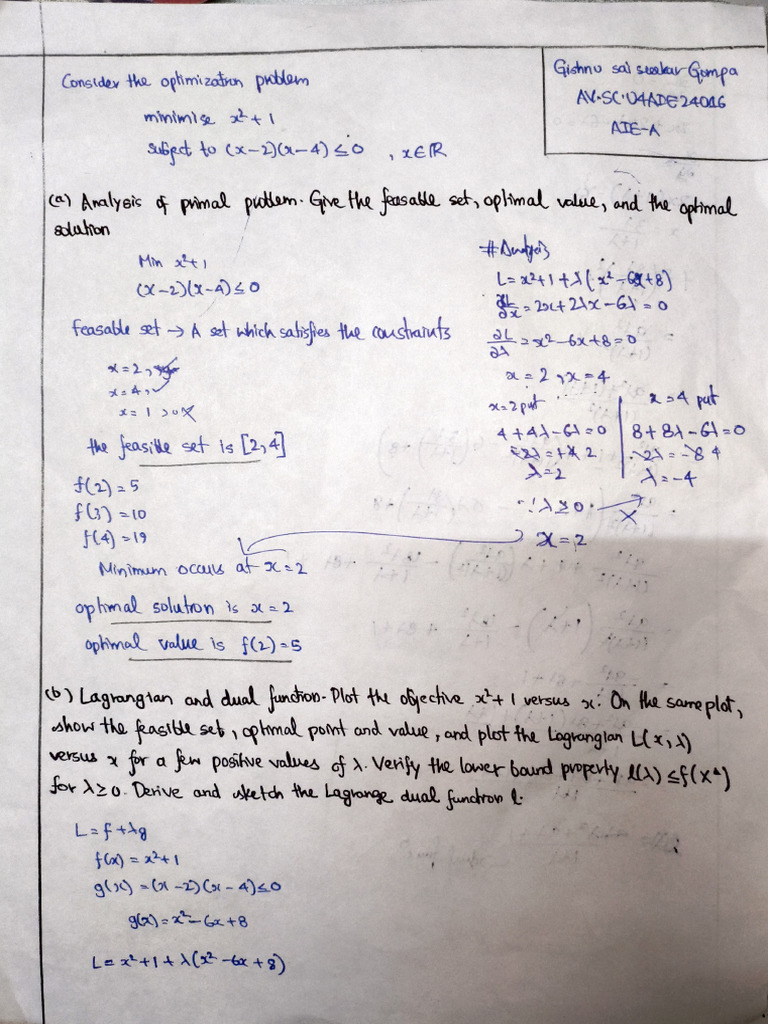 Consider the optimization problem
minimise x² + 1
subject to (x-2)(x-4) ≤ 0 , x∈ℝ
Gishnu sai
Gompa
AV.SC.U4ADE24016
AIE-A
(a) Analysis of primal problem. Give the feasable set, optimal value, and the optimal
solution
Min x²+1
(x-2)(x-4) ≤ 0
feasable set → A set which satisfies the constraints
x = 2,
x = 4,
x = 1 >0 X
the feasible set is [2,4]
f(2) = 5
f(3) = 10
f(4) = 19
Minimum occurs at x = 2
optimal solution is x = 2
optimal value is f(2) = 5
# Analysis
L = x²+1 + λ(x² - 6x + 8)
∂L/∂x = 2x + 2λx - 6λ = 0
∂L/∂λ = x² - 6x + 8 = 0
x = 2, x = 4
x = 2 put
4 + 4λ - 6λ = 0
λ = 2
x = 4 put
8 + 8λ - 6λ = 0
λ = -4
∵ λ ≥ 0 X
x = 2
(b) Lagrangian and dual function. Plot the objective x² + 1 versus x. On the same plot,
show the feasible set, optimal point and value, and plot the Lagrangian L(x, λ)
versus x for a few positive values of λ. Verify the lower bound property l(λ) ≤ f(x*)
for λ ≥ 0. Derive and sketch the Lagrange dual function l.
L = f + λg
f(x) = x² + 1
g(x) = (x - 2)(x - 4) ≤ 0
g(x) = x² - 6x + 8
L = x² + 1 + λ(x² - 6x + 8)